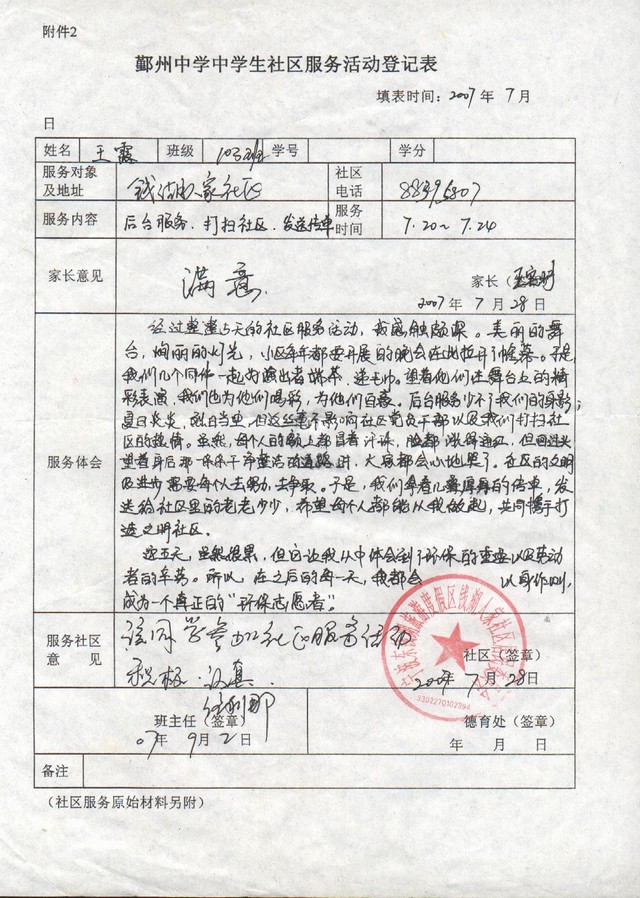 附件2
鄞州中学中学生社区服务活动登记表
填表时间：2007年7月
日
姓名 王霞 班级 103班 学号 学分
服务对象及地址 钱湖人家社区 社区电话 88396807
服务内容 后台服务、打扫社区、发送传单 服务时间 7.20~7.24
家长意见 满意 家长（
2007年7月28日
服务体会
经过整整5天的社区服务活动，我感触颇深。美丽的舞
台，绚丽的灯光，小区每年都要开展的晚会在此拉开了帷幕。于是
我们几个同伴一起为演出者端茶、递毛巾。望着他们在舞台上的精
彩表演，我们也为他们喝彩，为他们自豪。后台服务少不了我们的身影；
夏日炎炎，烈日当空，但这丝毫不影响社区党员干部以及我们打扫社
区的热情。虽然，每个人的额上都冒着汗珠，脸都涨得通红，但回过头
望着身后那一条条干净整洁的道路时，大家都会心地笑了。社区的文明
及进步需要每个人去努力，去争取。于是，我们拿着几叠厚厚的传单，发
送给社区里的老老少少，希望每个人都能从我做起，共同携手打
造文明社区。
这五天，虽然很累，但这让我从中体会到了环保的重要以及劳动
者的辛劳。所以，在之后的每一天，我都会 以身作则，
成为一个真正的“环保志愿者”。
服务社区意见 该同学参加社区服务活动
积极、认真。
社区（签章）
2007年7月28日
3302270102394
班主任（签章）
07年9月2日
德育处（签章）
年 月 日
备注
（社区服务原始材料另附）